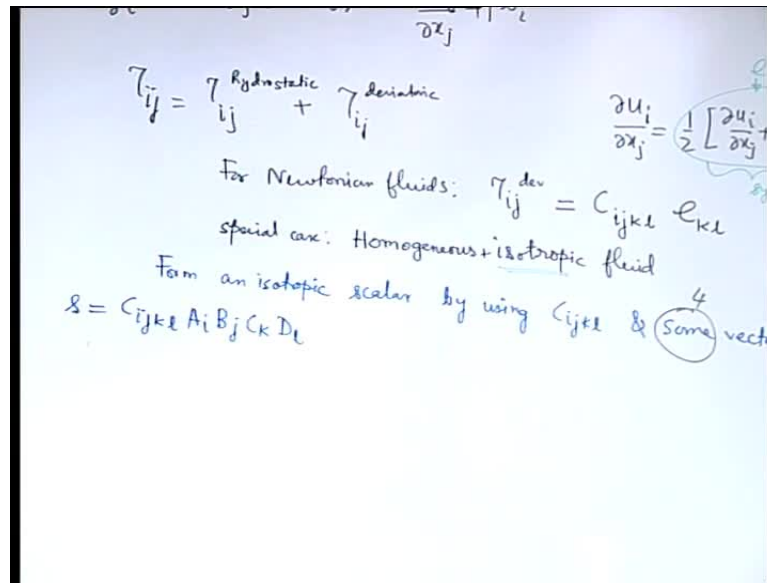 ∂x_j
τ_ij = τ_ij^hydrostatic + τ_ij^deviatoric
∂u_i/∂x_j = 1/2 [∂u_i/∂x_j +
For Newtonian fluids: τ_ij^dev = C_ijkl e_kl
special case: Homogeneous + isotropic fluid
Form an isotopic scalar by using C_ijkl & some vect
4
s = C_ijkl A_i B_j C_k D_l